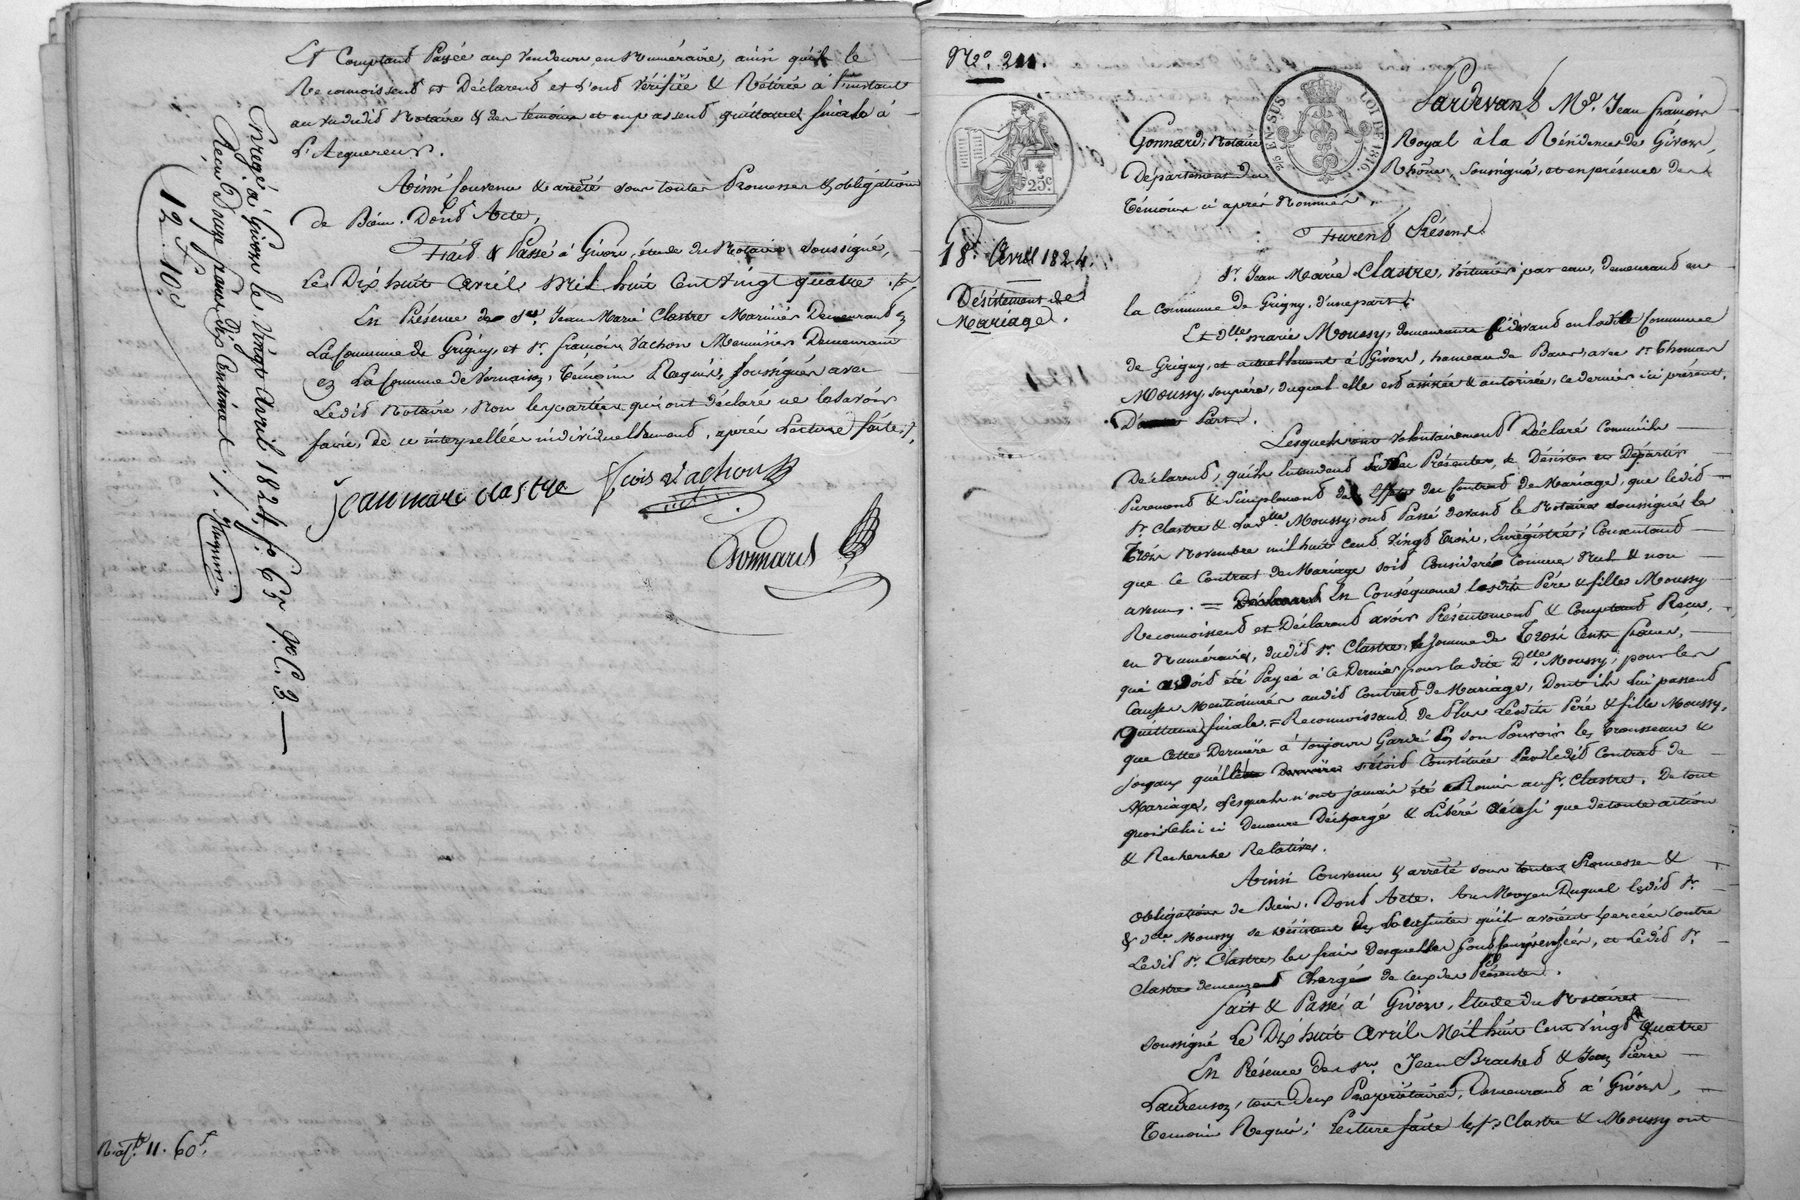 Et Comptant Passée aux Vendeurs en Numéraire, ainsi qu'ils le
Reconnoissent et Déclarent et l'ont Vérifiée & Retirée à l'instant
au vu dudit Notaire & des témoins et en passent quittance finale à
L'Acquereur.
Ainsi Convenu & arrêté sous toutes Promesses & obligations
de Biens. Dont Acte,
Fait & Passé à Givors, étude du Notaire soussigné,
Le Dix huit Avril Mil huit Cent vingt quatre
En Présence de Srs. Jean Marie Clastre Marinier Demeurant en
La Commune de Grigny, et Sr. françois Vachon Menuisier Demeurant
en La Commune de Vernaison, Témoins Requis, soussignés avec
Ledit Notaire, Non les parties qui ont déclaré ne le savoir
faire, de ce interpellées individuellement, après Lecture faite.
Jean marie clastre fcois Vachon
Gonnard
Enregé. à Givors le Vingt Avril 1824, fo. 65 ro. C. 3.
Reçu Douze francs dix Centimes
12 f. 10 c
11. 60
No. 211.
25 EN SUS
LOI DE 1816
25c
18. Avril 1824.
Désistement de
Mariage.
Pardevant Me. Jean françois
Gonnard, Notaire Royal à la Résidence de Givors,
Département du Rhône, soussigné, et en présence des
témoins ci après Nommés,
Furent Présens.
Sr. Jean Marie Clastre, voiturier par eau, demeurant en
la Commune de Grigny, d'une part;
Et Dlle. marie Moussy, demeurante ci devant en ladite Commune
de Grigny, et actuellement à Givors, hameau de Bans, avec Sr. Thomas
Moussy, son père, duquel elle est assistée & autorisée, ce dernier ici présent,
D'autre Part.
Lesquels ont volontairement Déclaré Comme ils
Déclarent, qu'ils Entendent Présentes, se Désister et Départir
Purement & Simplement de l'Effet du Contrat de Mariage, que ledit
Sr. Clastre & Ladlle. Moussy, ont Passé devant le Notaire soussigné le
trois Novembre mil huit cent Vingt Trois, Enrégistré; Consentant
que ce Contrat de Mariage soit Considéré Comme Nul & non
avenu. = En Conséquence lesdits Père & fille Moussy
Reconnoissent et Déclarent avoir Présentement & Comptant Reçu,
en Numéraire, dudit Sr. Clastre, la Somme de Trois Cents francs,
qui avoit été Payée à ce Dernier pour la dite Dlle. Moussy, pour les
Causes Mentionnées audit Contrat de Mariage, Dont ils lui passent
Quittance finale. = Reconnoissant de Plus Lesdits Père & fille Moussy,
que Cette Dernière à toujours Gardé En son Pouvoir les trousseau &
Joyaux qu'elle s'étoit Constituée Par ledit Contrat de
Mariage, Lesquels n'ont jamais été Remis au Sr. Clastre. De tout
quoi Celui ci demeure Déchargé & Libéré Ainsi que de toute action
& Recherche Relatives.
Ainsi Convenu & arrêté sous toutes Promesses &
obligations de Biens. Dont Acte. Au Moyen Duquel lesdits Sr.
& Dlle. Moussy se désistent des Poursuites qu'ils avoient Exercées Contre
Ledit Sr. Clastre, les frais Desquelles sont compensés, et Ledit Sr.
Clastre demeurant Chargé de Ceux des Présentes.
Fait & Passé à Givors, Etude du Notaire
Soussigné Le Dix huit Avril Mil huit Cent Vingt Quatre
En Présence des Srs. Jean Brachet & Jean Pierre
Laurenson, tous Deux Propriétaires, Demeurant à Givors,
Temoins Requis; Lecture faite les Srs. Clastre & Moussy ont